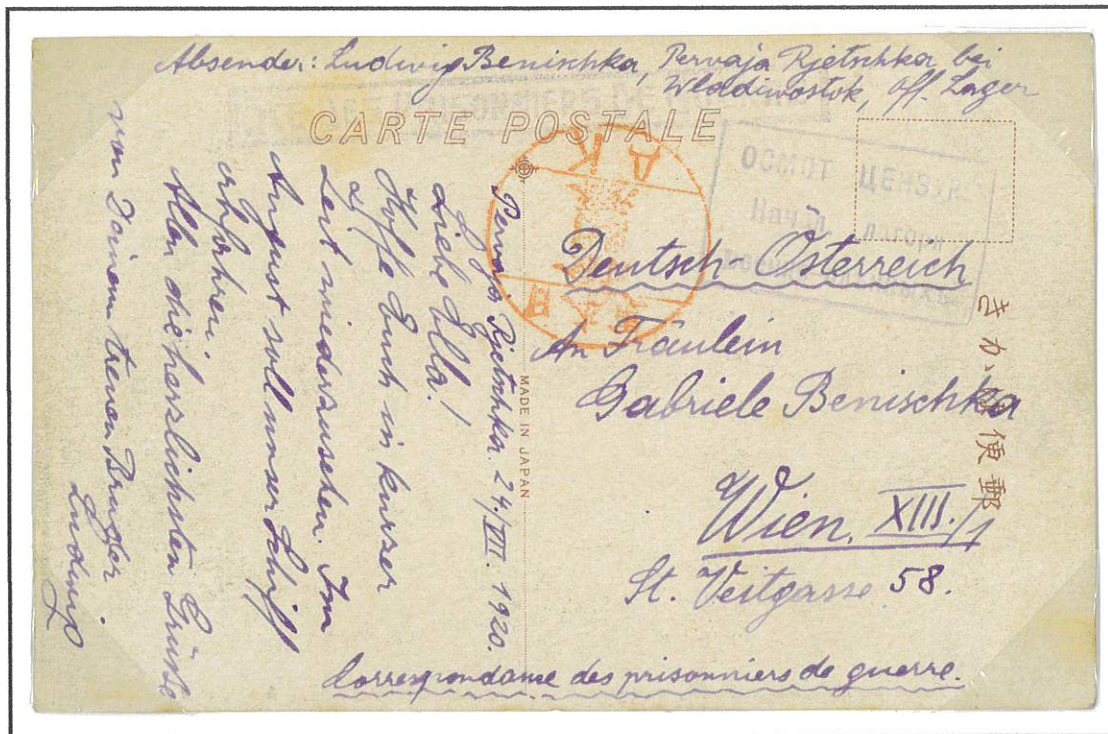 Absender: Ludwig Benischka, Pervaja Rjetschka bei
Wladiwostok, Off. Lager
CARTE POSTALE
ОСМОТ ЦЕНЗУР
Deutsch-Österreich
An Fräulein
Gabriele Benischka
Wien, XIII./1
St. Veitgasse 58.
Correspondance des prisonniers de guerre.
きかは便郵
MADE IN JAPAN
Pervaja Rjetschka. 24./VII. 1920.
Liebe Ella!
Hoffe Euch in kurzer
Zeit wiederzusehen. Im
August soll unser Schiff
Allen die herzlichsten Grüße
von Deinem treuen Bruder
Ludwig